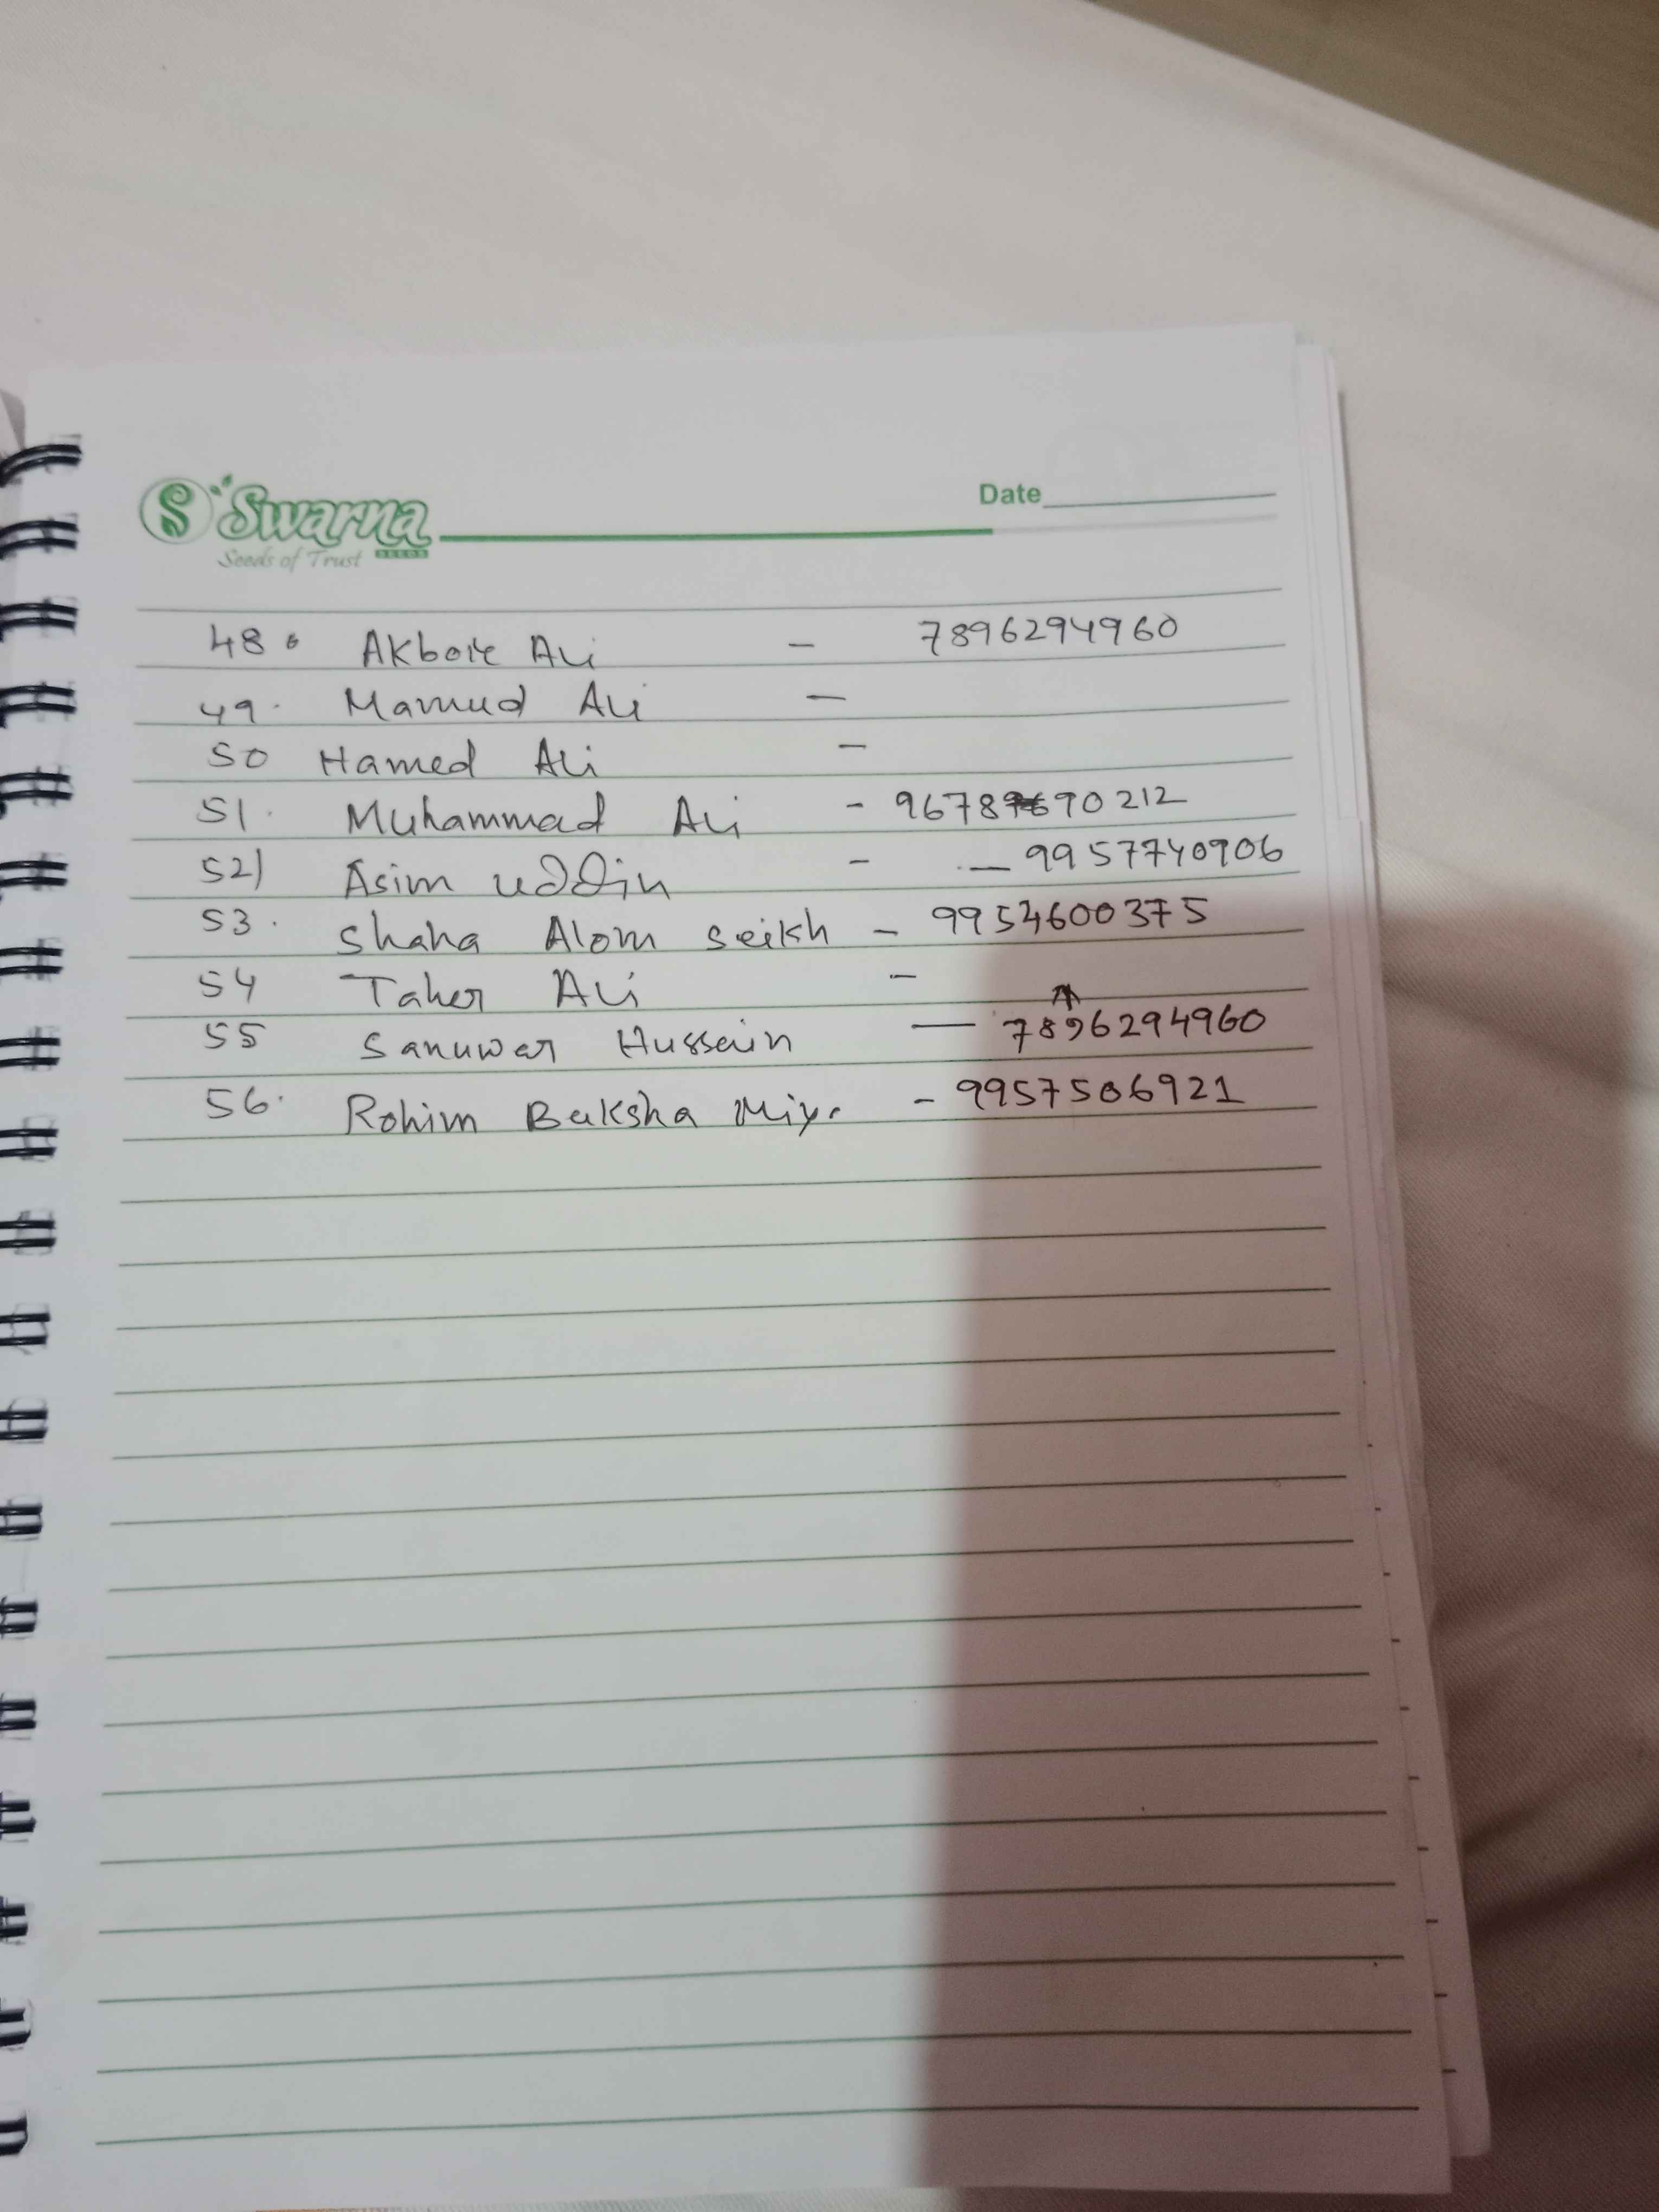 Swarna
SEEDS
Seeds of Trust
Date
48. Akbore Ali - 7896294960
49. Mamud Ali -
50 Hamed Ali -
51. Muhammad Ali - 9678690212
52) Asim uddin - - 9957740906
53. Shaha Alom Seikh - 9954600375
54 Taher Ali -
55 Sanuwar Hussain - 7896294960
56. Rohim Baksha Miya - 9957506921